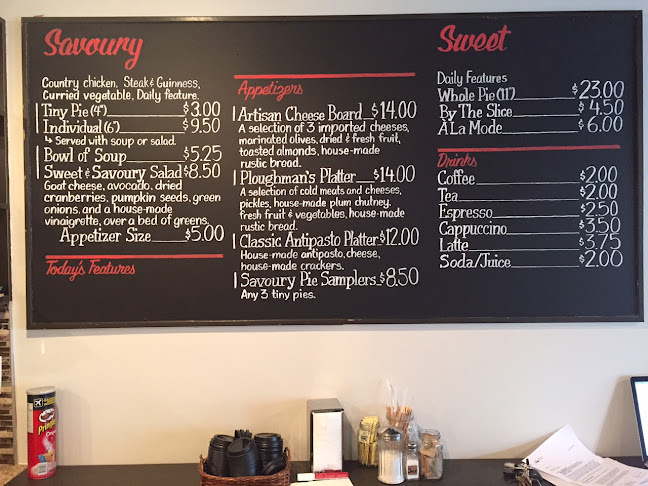 Savoury
Country chicken, Steak & Guinness,
Curried vegetable, Daily feature
Tiny Pie (4") $3.00
Individual (6") $9.50
↳ Served with soup or salad.
Bowl of Soup $5.25
Sweet & Savoury Salad $8.50
Goat cheese, avocado, dried
cranberries, pumpkin seeds, green
onions, and a house-made
vinaigrette, over a bed of greens.
Appetizer Size $5.00
Today's Features
Appetizers
Artisan Cheese Board $14.00
A selection of 3 imported cheeses,
marinated olives, dried & fresh fruit,
toasted almonds, house-made
rustic bread.
Ploughman's Platter $14.00
A selection of cold meats and cheeses,
pickles, house-made plum chutney,
fresh fruit & vegetables, house-made
rustic bread.
Classic Antipasto Platter $12.00
House-made antipasto, cheese,
house-made crackers.
Savoury Pie Samplers $8.50
Any 3 tiny pies.
Sweet
Daily Features
Whole Pie (11") $23.00
By The Slice $4.50
À La Mode $6.00
Drinks
Coffee $2.00
Tea $2.00
Espresso $2.50
Cappuccino $3.50
Latté $3.75
Soda/Juice $2.00
Pringles